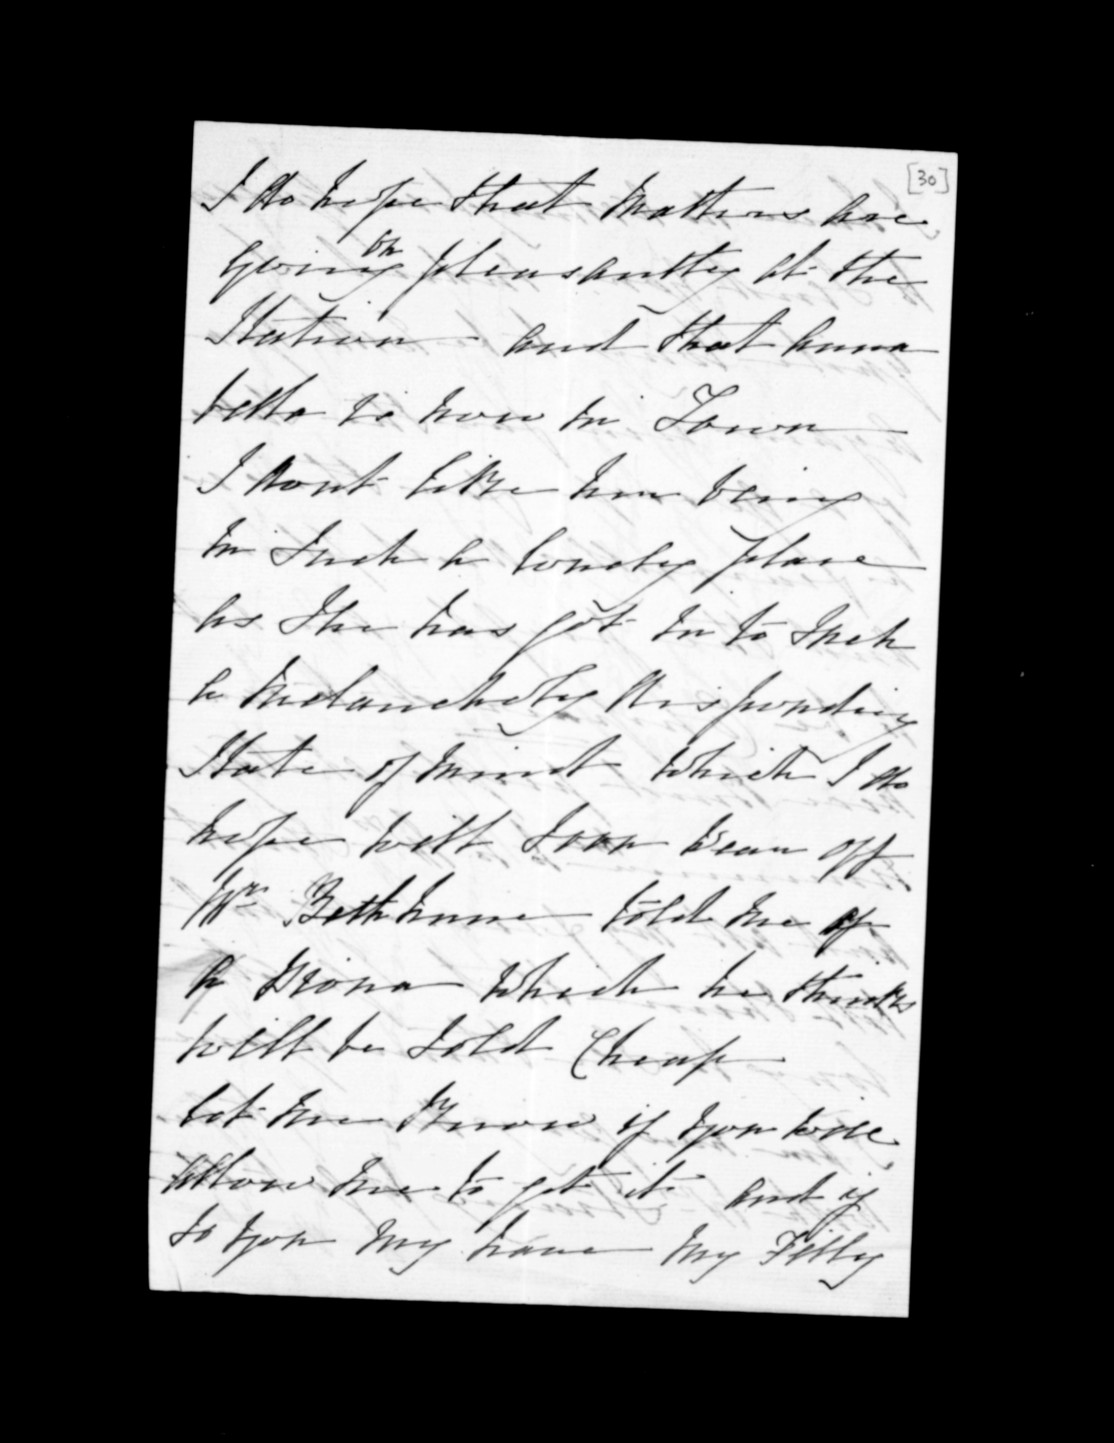 [30]
I do hope that matters are
going on pleasantly at the
Station - and that Anna
bella is now in Town
I dont like her being
in such a lonely place
as she has got in to such
a melancholy disponding
State of mind which I do
hope will soon wear off
Mr Bethhune told me of
a Piona which he thinks
will be sold Cheap
let me know if you will
allow me to get it and if
so you my have my Filly